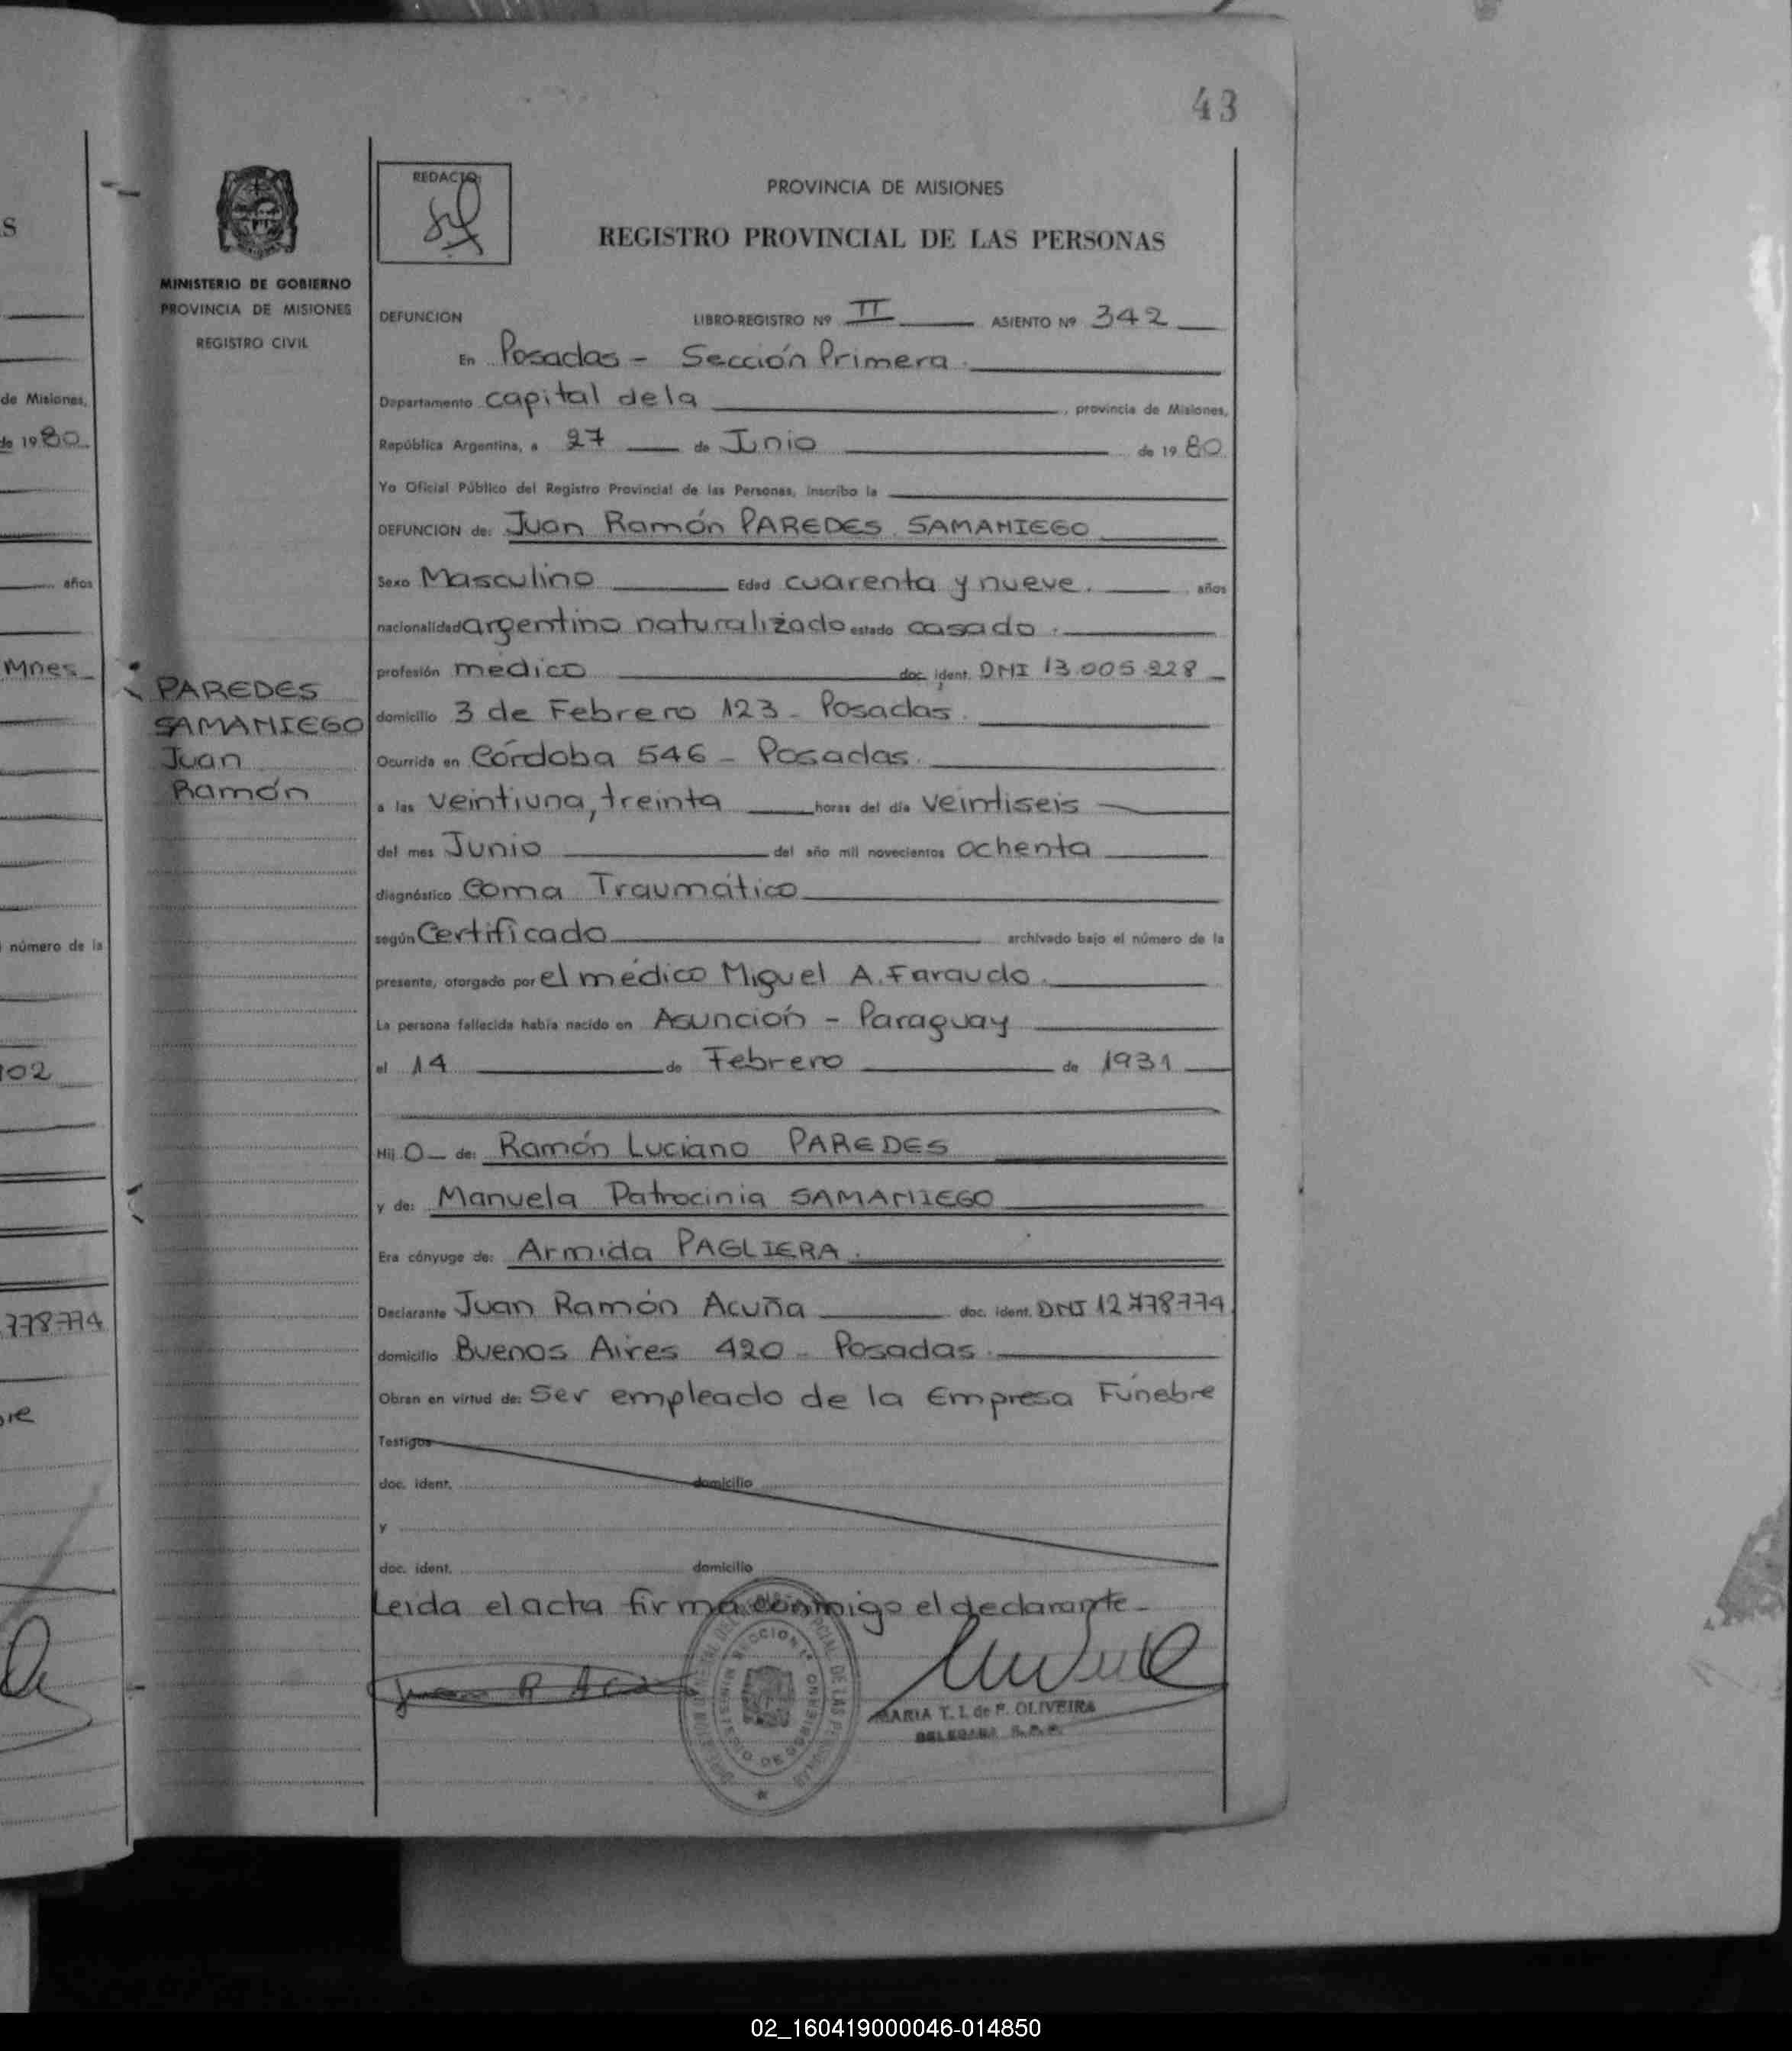 43
S
de Misiones,
de 1980
años
Mnes
número de la
102
778774
bre
MINISTERIO DE GOBIERNO
PROVINCIA DE MISIONES
REGISTRO CIVIL
PAREDES
SAMANIEGO
Juan
Ramón
REDACTO:
PROVINCIA DE MISIONES
REGISTRO PROVINCIAL DE LAS PERSONAS
DEFUNCION LIBRO-REGISTRO Nº II ASIENTO Nº 342
En Posadas - Sección Primera.
Departamento capital de la , provincia de Misiones,
República Argentina, a 27 de Junio de 1980
Yo Oficial Público del Registro Provincial de las Personas, inscribo la
DEFUNCION de: Juan Ramón PAREDES SAMANIEGO
Sexo Masculino Edad cuarenta y nueve. años
nacionalidad argentino naturalizado estado casado.
profesión médico doc. ident. DNI 13.005.228
domicilio 3 de Febrero 123 - Posadas.
Ocurrida en Córdoba 546 - Posadas.
a las veintiuna, treinta horas del día veintiseis
del mes Junio del año mil novecientos ochenta
diagnóstico Coma Traumático
según Certificado archivado bajo el número de la
presente, otorgado por el médico Miguel A. Faraudo.
La persona fallecida había nacido en Asunción - Paraguay
el 14 de Febrero de 1931
Hij O de: Ramón Luciano PAREDES
y de: Manuela Patrocinia SAMANIEGO
Era cónyuge de: Armida PAGLIERA.
Declarante Juan Ramón Acuña doc. ident. DNI 12778774
domicilio Buenos Aires 420 - Posadas.
Obran en virtud de: Ser empleado de la Empresa Fúnebre
Testigos
doc. ident. domicilio
y
doc. ident. domicilio
Leída el acta firma conmigo el declarante-
Juan R Ac
MARIA T. I. de F. OLIVEIRA
DELEGADA R.P.P.
SECCION 1ª
MINISTERIO DE GOBIERNO
02_160419000046-014850